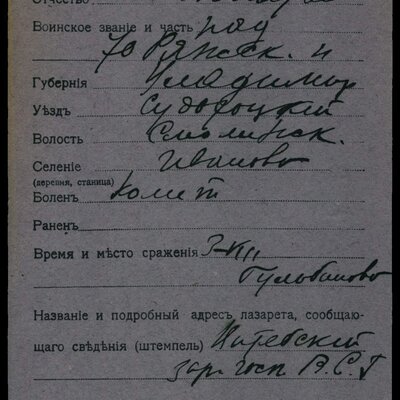 Отчество
Воинское званіе и часть ряд
70 Ряжск. п
Губернія Владимир
Уѣздъ Судогоцкій
Волость Смолинск.
Селеніе Иваново
(деревня, станица)
Боленъ
Раненъ
Время и мѣсто сраженія
Гульбаново
Названіе и подробный адресъ лазарета, сообщаю-
щаго свѣдѣнія (штемпель) Витебский
зар. госп В.С.Г